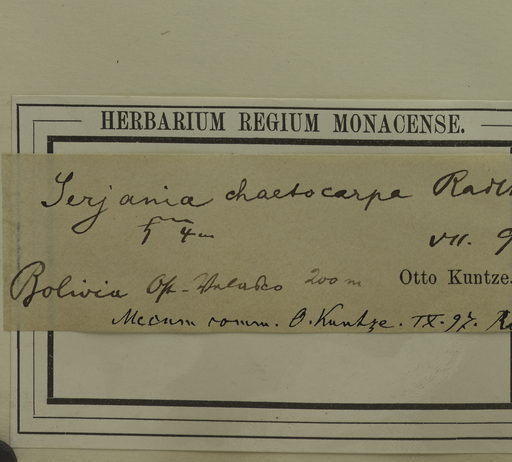 HERBARIUM REGIUM MONACENSE.
Serjania chaetocarpa Radlk
ђ 4 m
VII. 9
Bolivia Ost-Velasco 200 m Otto Kuntze.
Mecum comm. O. Kuntze. IX. 97.